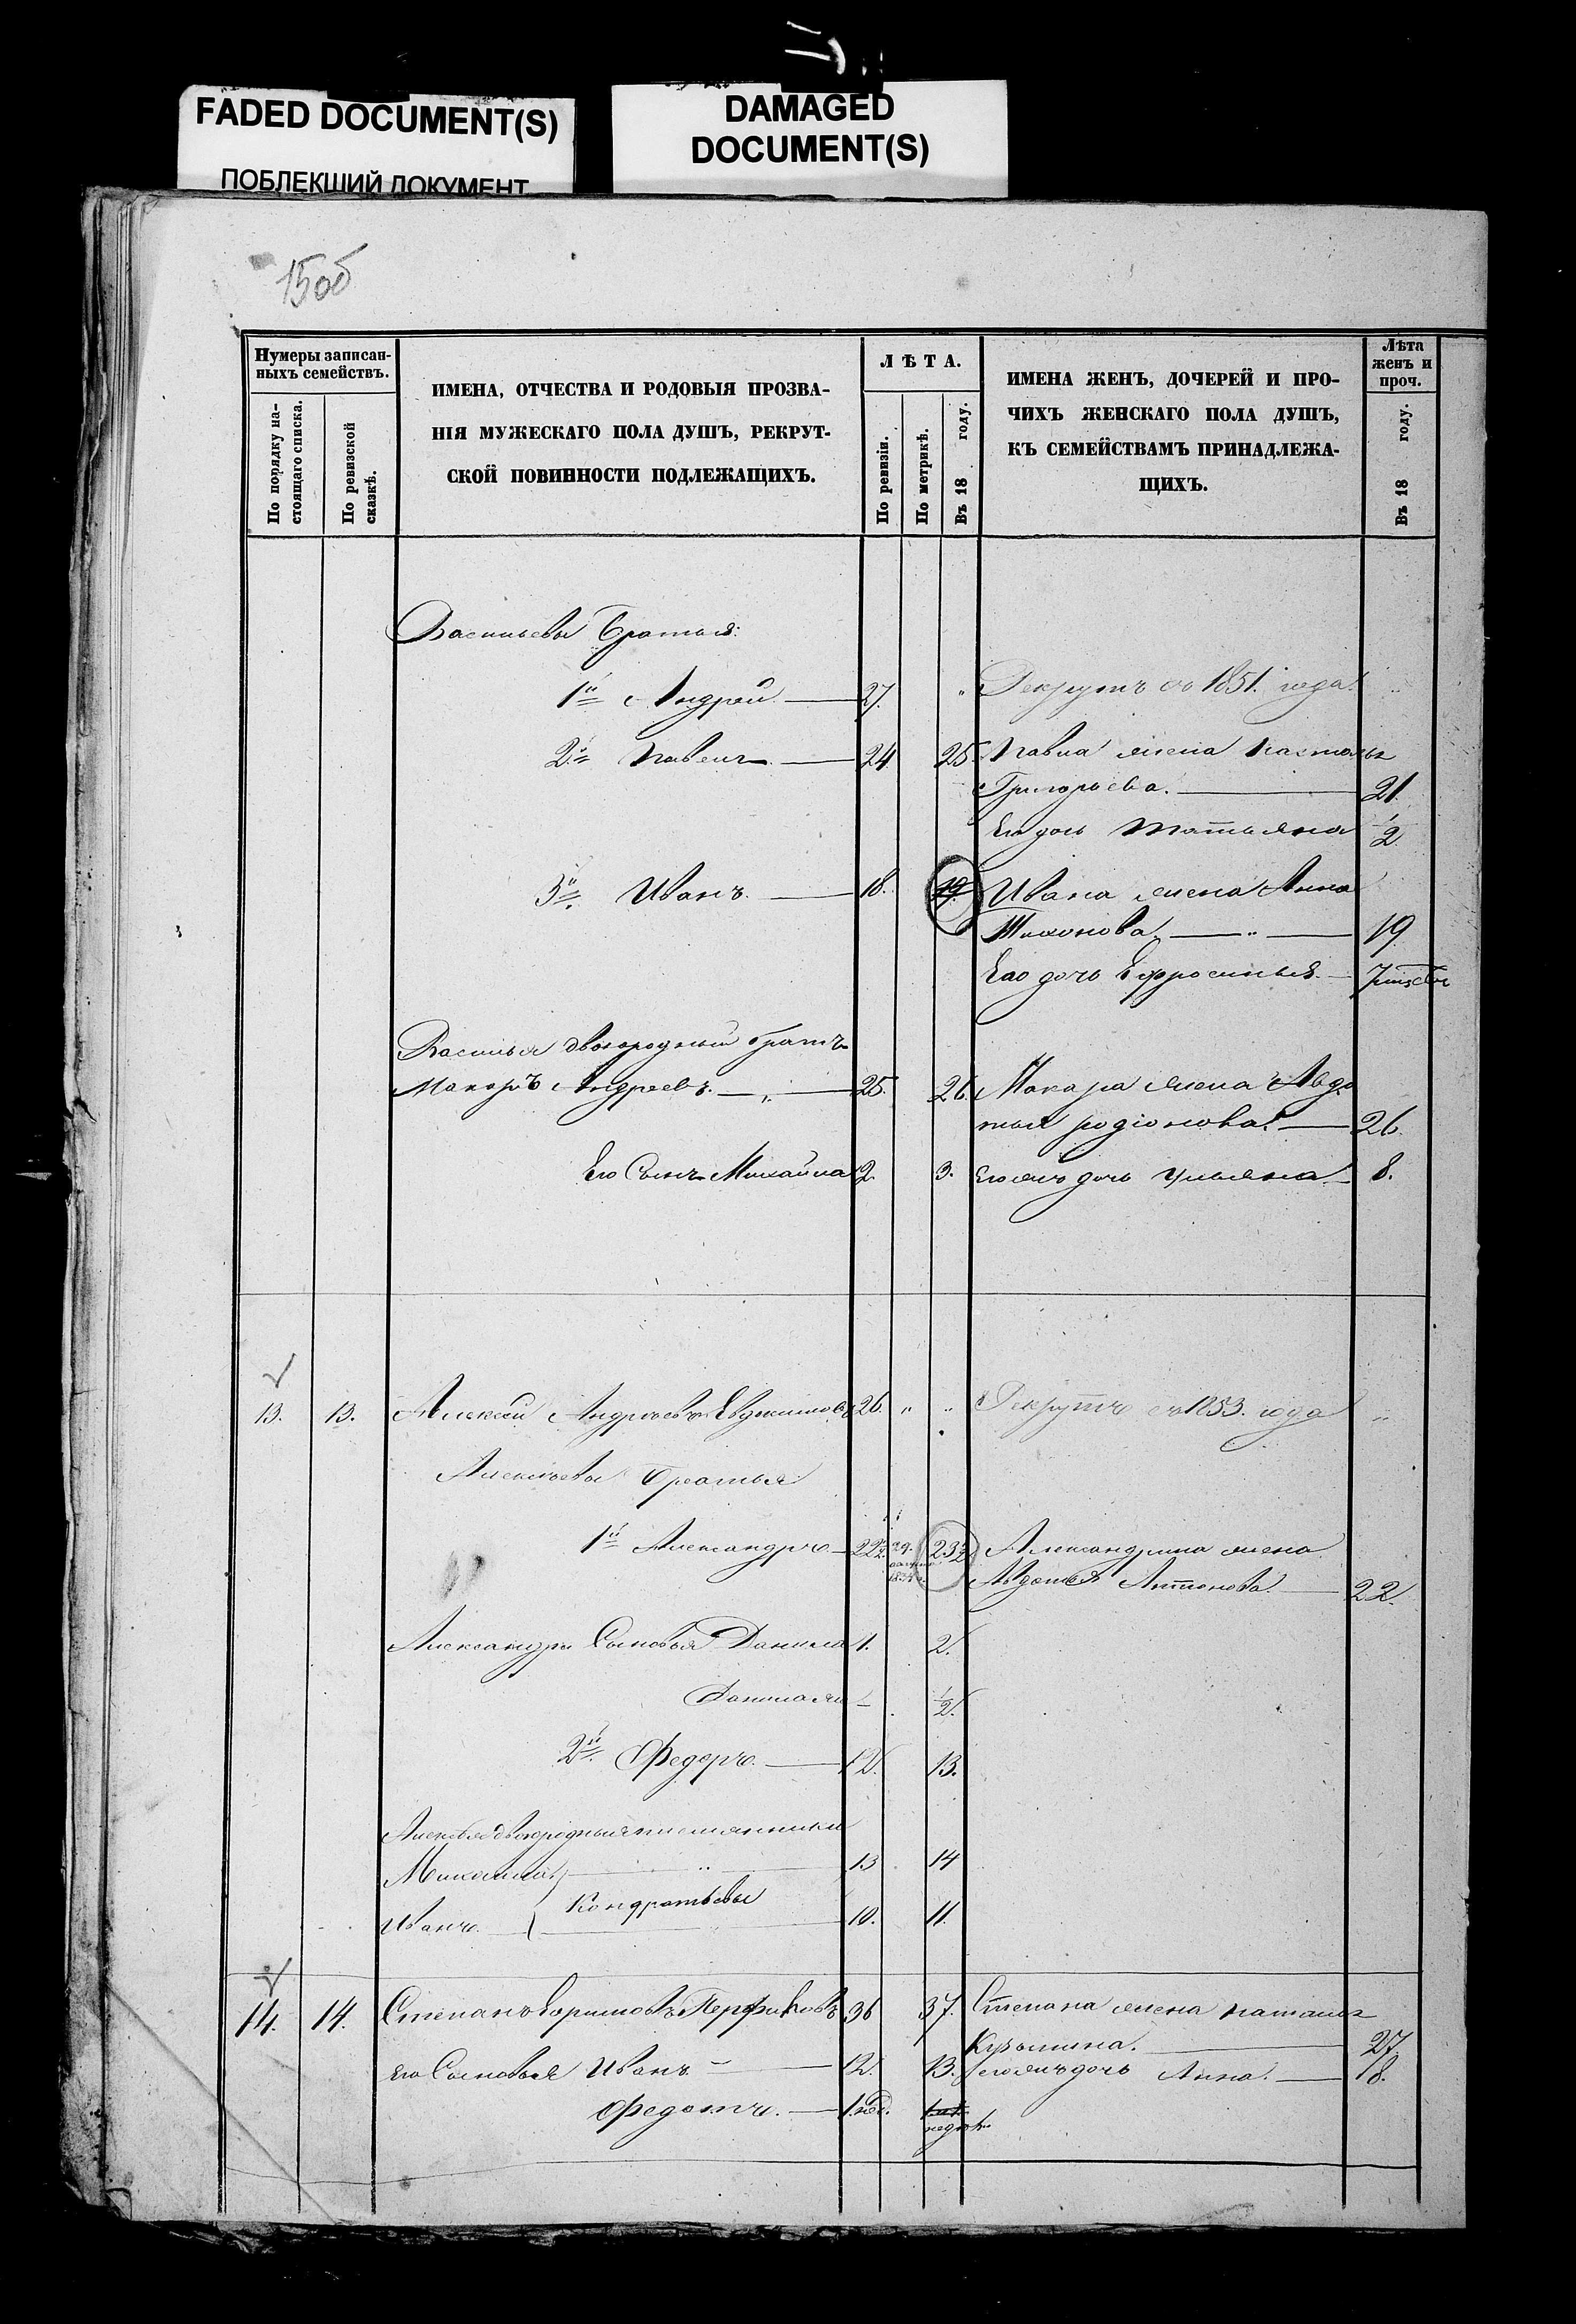 FADED DOCUMENT(S)
ПОБЛЕКШИЙ ДОКУМЕНТ
DAMAGED
DOCUMENT(S)
15об
Нумеры записан-
ныхъ семействъ.
По порядку на-
стоящаго списка.
По ревизской
сказкѣ.
ИМЕНА, ОТЧЕСТВА И РОДОВЫЯ ПРОЗВА-
НІЯ МУЖЕСКАГО ПОЛА ДУШЪ, РЕКРУТ-
СКОЙ ПОВИННОСТИ ПОДЛЕЖАЩИХЪ.
ЛѢТА.
По ревизіи.
По метрикѣ.
Въ 18 году.
ИМЕНА ЖЕНЪ, ДОЧЕРЕЙ И ПРО-
ЧИХЪ ЖЕНСКАГО ПОЛА ДУШЪ,
КЪ СЕМЕЙСТВАМЪ ПРИНАДЛЕЖА-
ЩИХЪ.
Лѣта
женъ и
проч.
Въ 18 году.
Васильевы Братья:
1й Андрей 27. " Рекрутъ съ 1851. года.
2й Павелъ 24 25 Павла жена Настасья
Григорьева. 21.
Его дочь Татьяна 1/2
3й Иванъ. 18. 19 Ивана жена Анна
Тихонова. 19
Его дочь Ефросинья.
Василья двоюродный братъ
Макаръ Андреевъ. 25. 26. Макара жена Авдо
тья родіонова. 26.
Его Сынъ Михайла 2. 3. Его жъ дочь Ульяна 8.
13. 13. Алексей Андреевъ 26. " " Рекрутъ съ 1853. года "
Алексеевы Братья
1й Александръ 22 1/2 23 1/2 Александра жена
Авдотья Антонова. 22.
Александра Сыновья Данила 1. 2.
1/2.
2й Федоръ. 12. 13.
Алексея двоюродныя племянники
Михайла 13 14
Кондратьевы
Иванъ. 10. 11.
14. 14. Степанъ 36 37. Степана жена наталья
Кузьмина. 27.
Его Сыновья Иванъ 12. 13. его жъ дочь Анна. 8.
Федотъ. 1 нед.